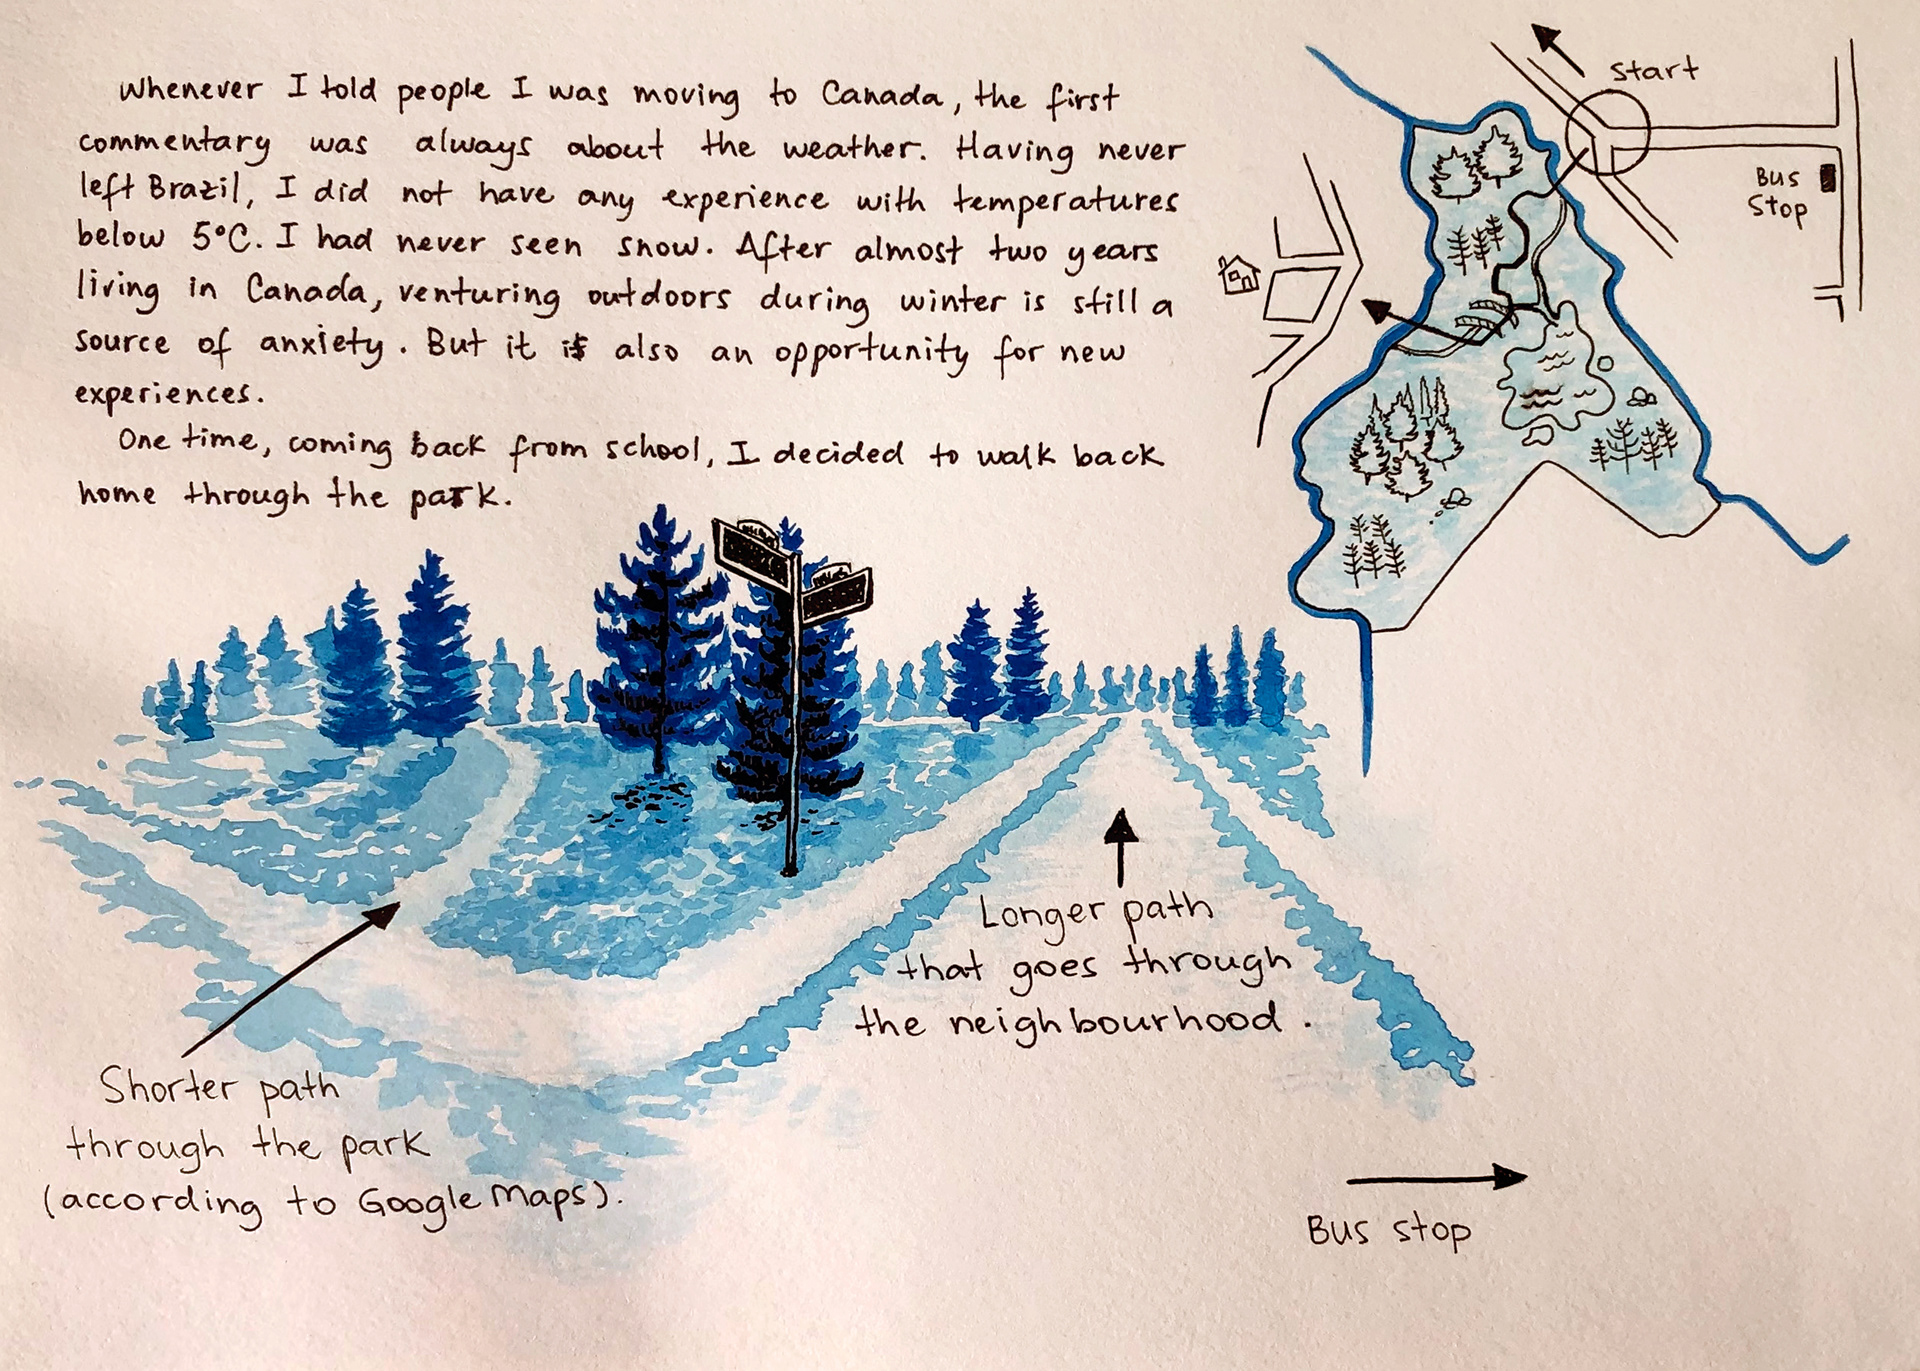 Whenever I told people I was moving to Canada, the first
commentary was always about the weather. Having never
left Brazil, I did not have any experience with temperatures
below 5°C. I had never seen snow. After almost two years
living in Canada, venturing outdoors during winter is still a
source of anxiety. But it is also an opportunity for new
experiences.
One time, coming back from school, I decided to walk back
home through the park.
Start
Bus
Stop
Longer path
that goes through
the neighbourhood.
Shorter path
through the park
(according to Google Maps).
Bus stop